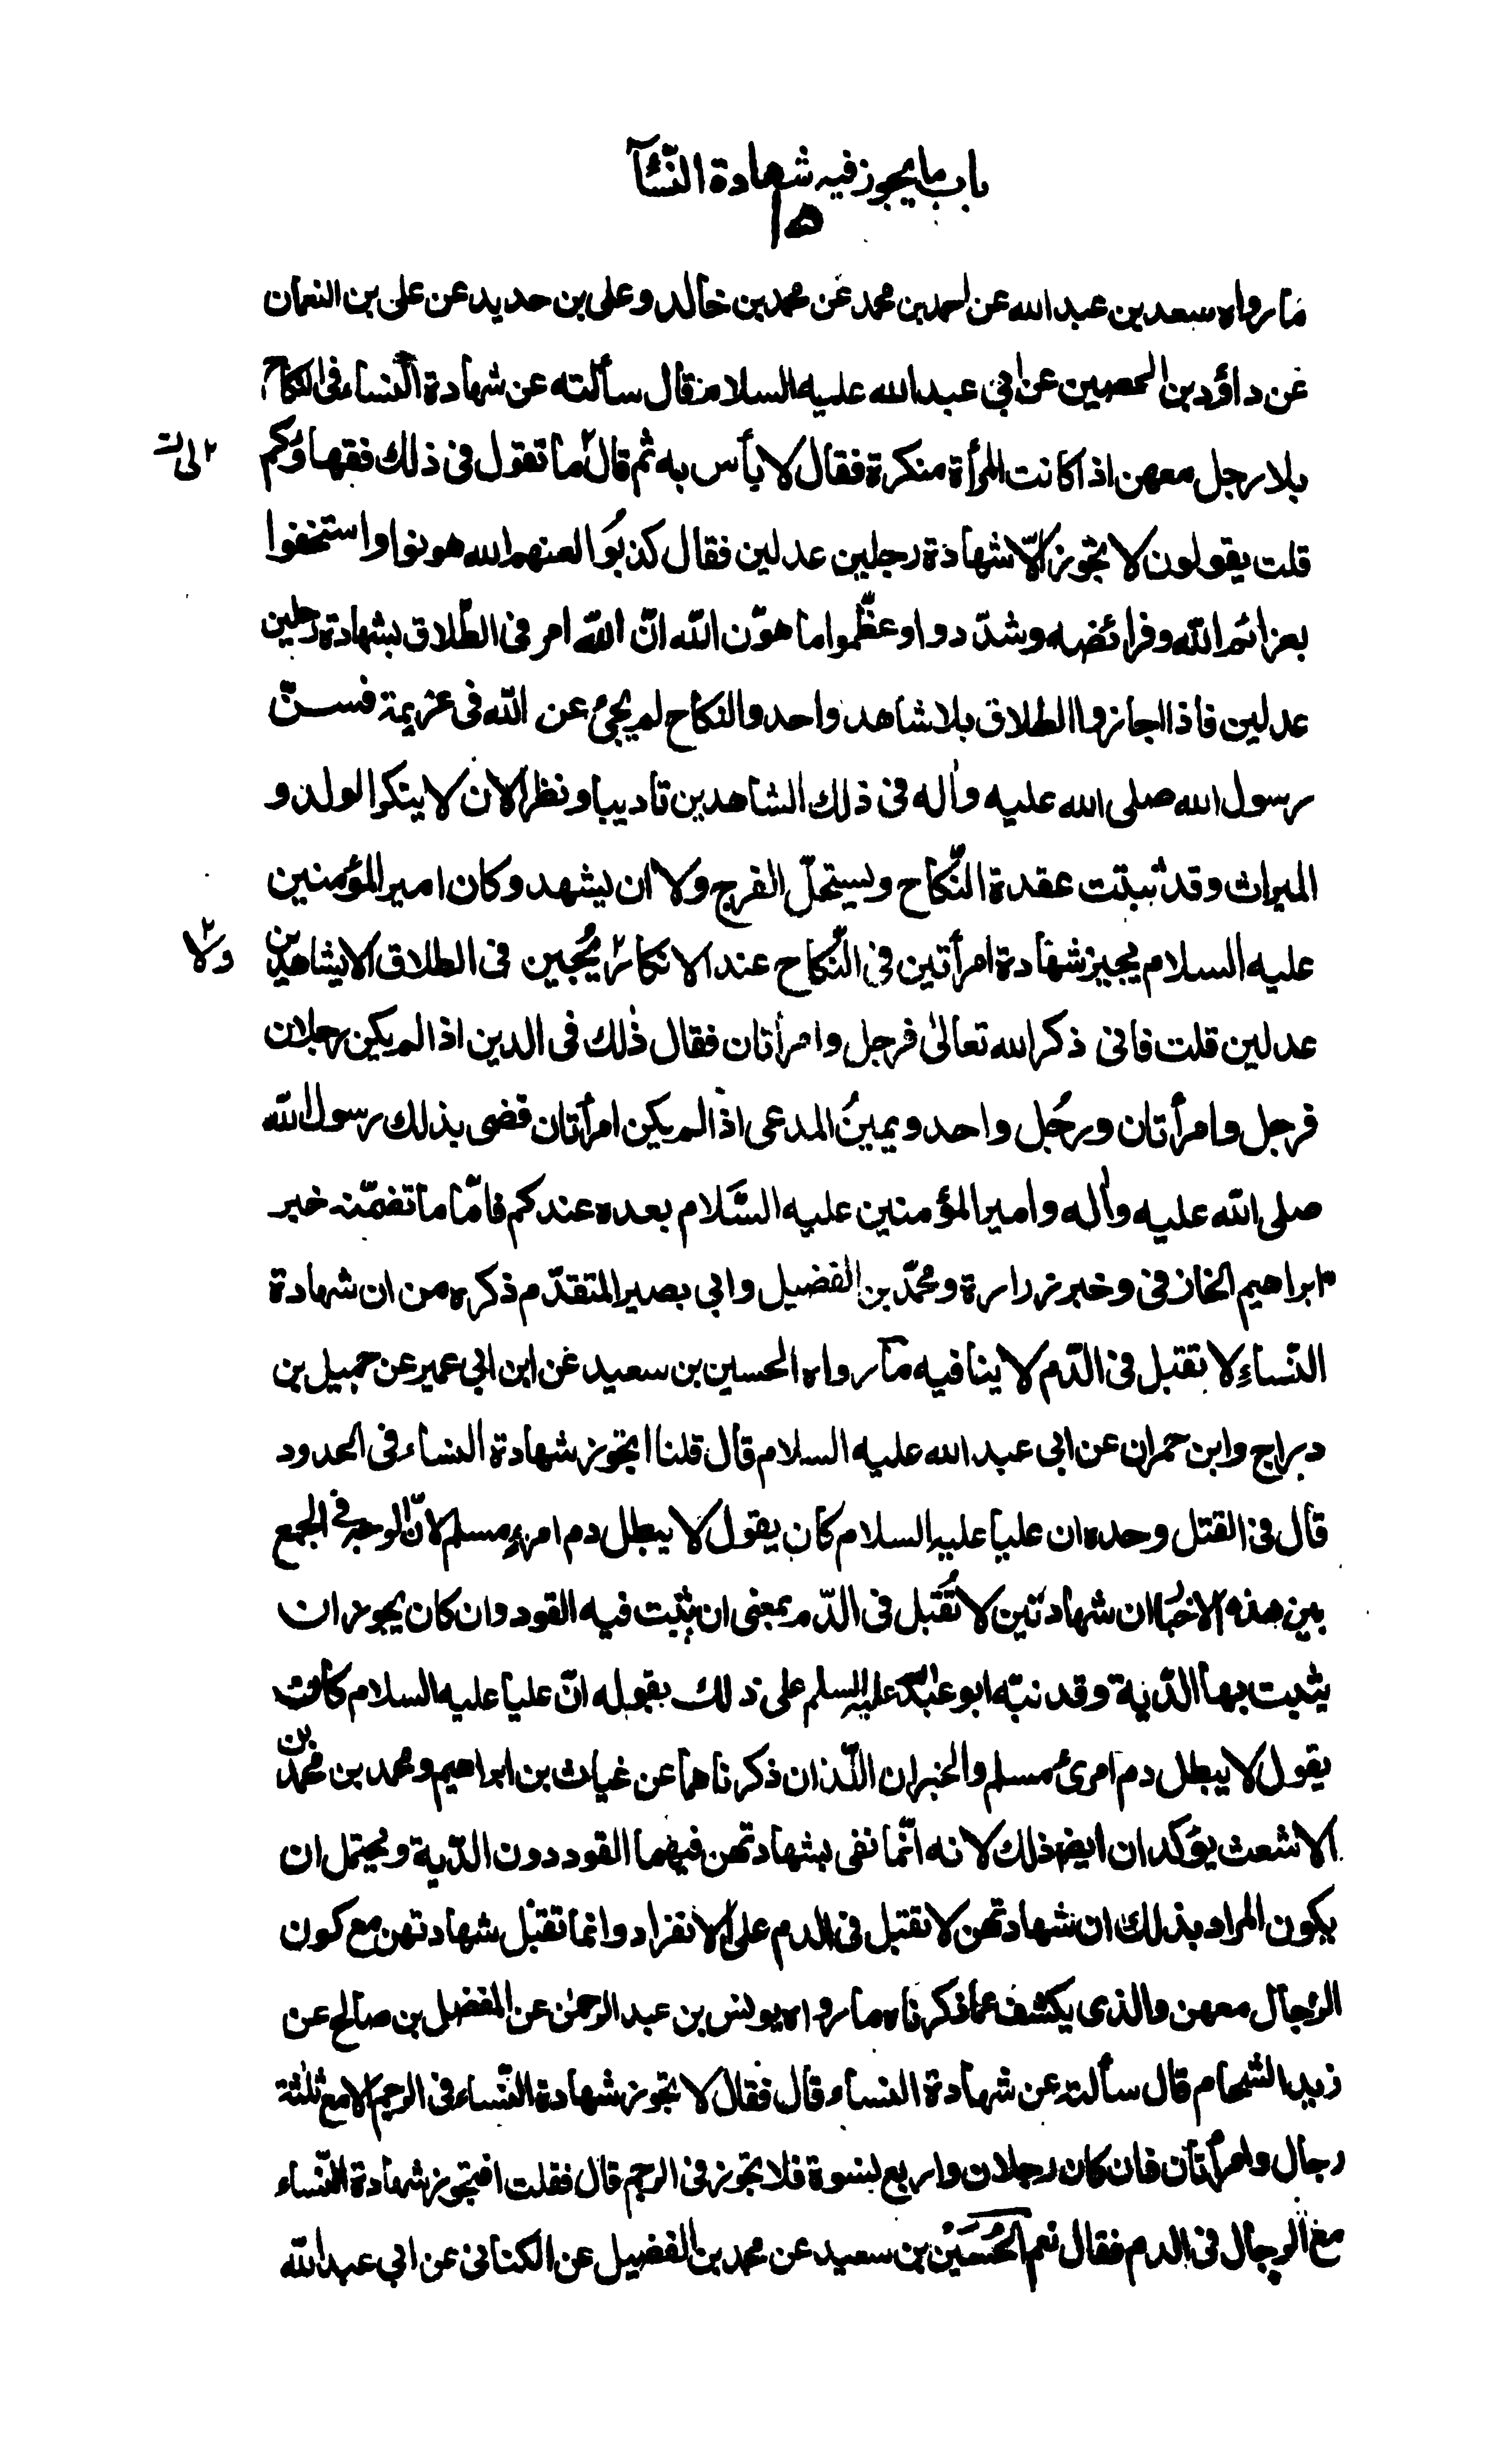 باب ما يجوز فيه شهادة النسآء
١٥
ما رواه سعد بن عبد الله عن احمد بن محمد عن محمد بن خالد وعلى بن حديد عن على بن النعمان
عن داؤد بن الحصين عن ابى عبد الله عليه السلام قال سألته عن شهادة النساء فى النكاح
بلا رجل معهن اذا كانت المرأة منكرة فقال لا بأس به ثم قال٢ ما تقول فى ذلك فقهاؤكم
٢ لى
قلت يقولون لا تجوز الّا شهادة رجلين عدلين فقال كذبُوا لعنهم الله هونوا واستخفوا
بعزائم الله وفرائضه وشدّدوا وعظّموا ما هوّن الله انّ الله امر فى الطّلاق بشهادة رجلين
عدلين فاذا اجازوا الطلاق بلا شاهد واحد والنكاح لم يجئ عن الله فى عزيمة فسنّ
رسول الله صلى الله عليه واٰله فى ذلك الشاهدين تاديبا ونظرا لان لا ينكر الولد و
الميراث وقد ثبتت عقدة النّكاح ويستحلّ الفرج ولا ان يشهد وكان امير المؤمنين
عليه السلام يجيز شهادة امرأتين فى النّكاح عند الانكار٢ يُجيز فى الطلاق الا شاهدين
٢ ولا
عدلين قلت فانى ذكر الله تعالىٰ فرجل وامرأتان فقال ذٰلك فى الدين اذا لم يكن رجلان
فرجل وامرأتان ورجُل واحد ويمينُ المدعى اذا لم يكن امرأتان قضى بذلك رسول الله
صلى الله عليه واٰله وامير المؤمنين عليه السَّلام بعده عندكم فامّا ما تضمّنه خبر
ابراهيم الخارفى وخبر زرارة ومحمّد بن الفضيل وابي بصير المتقدّم ذكره من ان شهادة
النّساءِ لا تقبل فى الدّم لا ينافيه ما رواه الحسين بن سعيد عن ابن ابي عمير عن جميل بن
دراج وابن حمران عن ابى عبد الله عليه السلام قال قلنا اتجوز شهادة النساء فى الحدود
قال فى القتل وحده ان عليا عليه السلام كان يقول لا يبطل دم امرءٍ مسلم لانّ الوجه فى الجمع
بين هذه الاخبا ان شهادتين لا تُقبل فى الدّم بمعنى ان يثبت فيه القود وان كان يجوز ان
يثبت بها الدّية وقد نبّه ابو عبد الله عليه السلم على ذلك بقوله انّ عليا عليه السلام كان
يقول لا يبطل دم امرئ مسلم والخبران اللّذان ذكرناهما عن غياث بن ابراهيم ومحمد بن محمّد بن
الاشعث يؤكدان ايضا ذلك لانه انّما نفى بشهادتهن فيهما القود دون الدّية ويحتمل ان
يكون المراد بذلك ان شهادتهن لا تقبل فى الدم على الانفراد وانما تقبل شهادتهن مع كون
الرّجال معهن والذى يكشف عما ذكرناه ما رواه يونس بن عبد الرحمن عن المفضل بن صالح عن
زيد الشحام قال سألته عن شهادة النساء قال فقال لا تجوز شهادة النّساء فى الرجم الا مع ثلثة
رجال وامرأتان فان كان رجلان واربع نسوة فلا تجوز فى الرجم قال فقلت افتجوز شهادة النّساء
مع الرجال فى الدم فقال نعم الحُسَيْن بن سعيد عن محمد بن الفضيل عن الكنانى عن ابي عبد الله